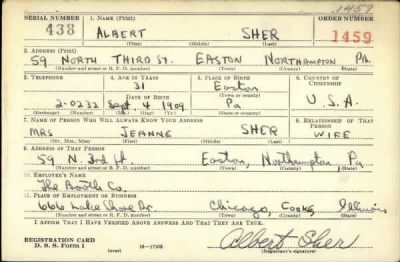 1459
SERIAL NUMBER 1. NAME (Print) ORDER NUMBER
438 ALBERT SHER 1459
(First) (Middle) (Last)
2. ADDRESS (Print)
59 NORTH THIRD ST. EASTON NORTHAMPTON PA.
(Number and street or R. F. D. number) (Town) (County) (State)
3. TELEPHONE 4. AGE IN YEARS 5. PLACE OF BIRTH 6. COUNTRY OF CITIZENSHIP
31 Easton
DATE OF BIRTH (Town or county)
2-0232 Sept. 4 1909 Pa U.S.A.
(Exchange) (Number) (Mo.) (Day) (Yr.) (State or country)
7. NAME OF PERSON WHO WILL ALWAYS KNOW YOUR ADDRESS 8. RELATIONSHIP OF THAT PERSON
MRS JEANNE SHER WIFE
(Mr., Mrs., Miss) (First) (Middle) (Last)
9. ADDRESS OF THAT PERSON
59 N. 3rd St. Easton, Northampton, Pa
(Number and street or R. F. D. number) (Town) (County) (State)
10. EMPLOYER'S NAME
The Booth Co.
11. PLACE OF EMPLOYMENT OR BUSINESS
666 Lake Shore Dr. Chicago, Cooke, Illinois
(Number and street or R. F. D. number) (Town) (County) (State)
I AFFIRM THAT I HAVE VERIFIED ABOVE ANSWERS AND THAT THEY ARE TRUE.
REGISTRATION CARD
D. S. S. Form 1 (over) 16—17105 Albert Sher
(Registrant's signature)